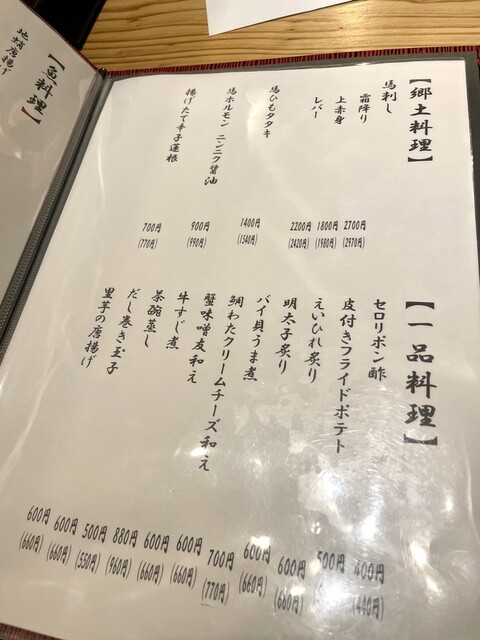 【郷土料理】
馬刺し
霜降り 2700円 (2970円)
上赤身 1800円 (1980円)
レバー 2200円 (2420円)
馬ひもタタキ 1400円 (1540円)
馬ホルモン ニンニク醤油 900円 (990円)
揚げたて辛子蓮根 700円 (770円)
【一品料理】
セロリポン酢 400円 (440円)
皮付きフライドポテト 500円
えいひれ炙り 600円 (660円)
明太子炙り 600円 (660円)
バイ貝うま煮 700円 (770円)
鯛わたクリームチーズ和え 600円 (660円)
蟹味噌友和え 600円 (660円)
牛すじ煮 880円 (960円)
茶碗蒸し 500円 (550円)
だし巻き玉子 600円 (660円)
里芋の唐揚げ 600円 (660円)
【魚料理】
地蛸唐揚げ